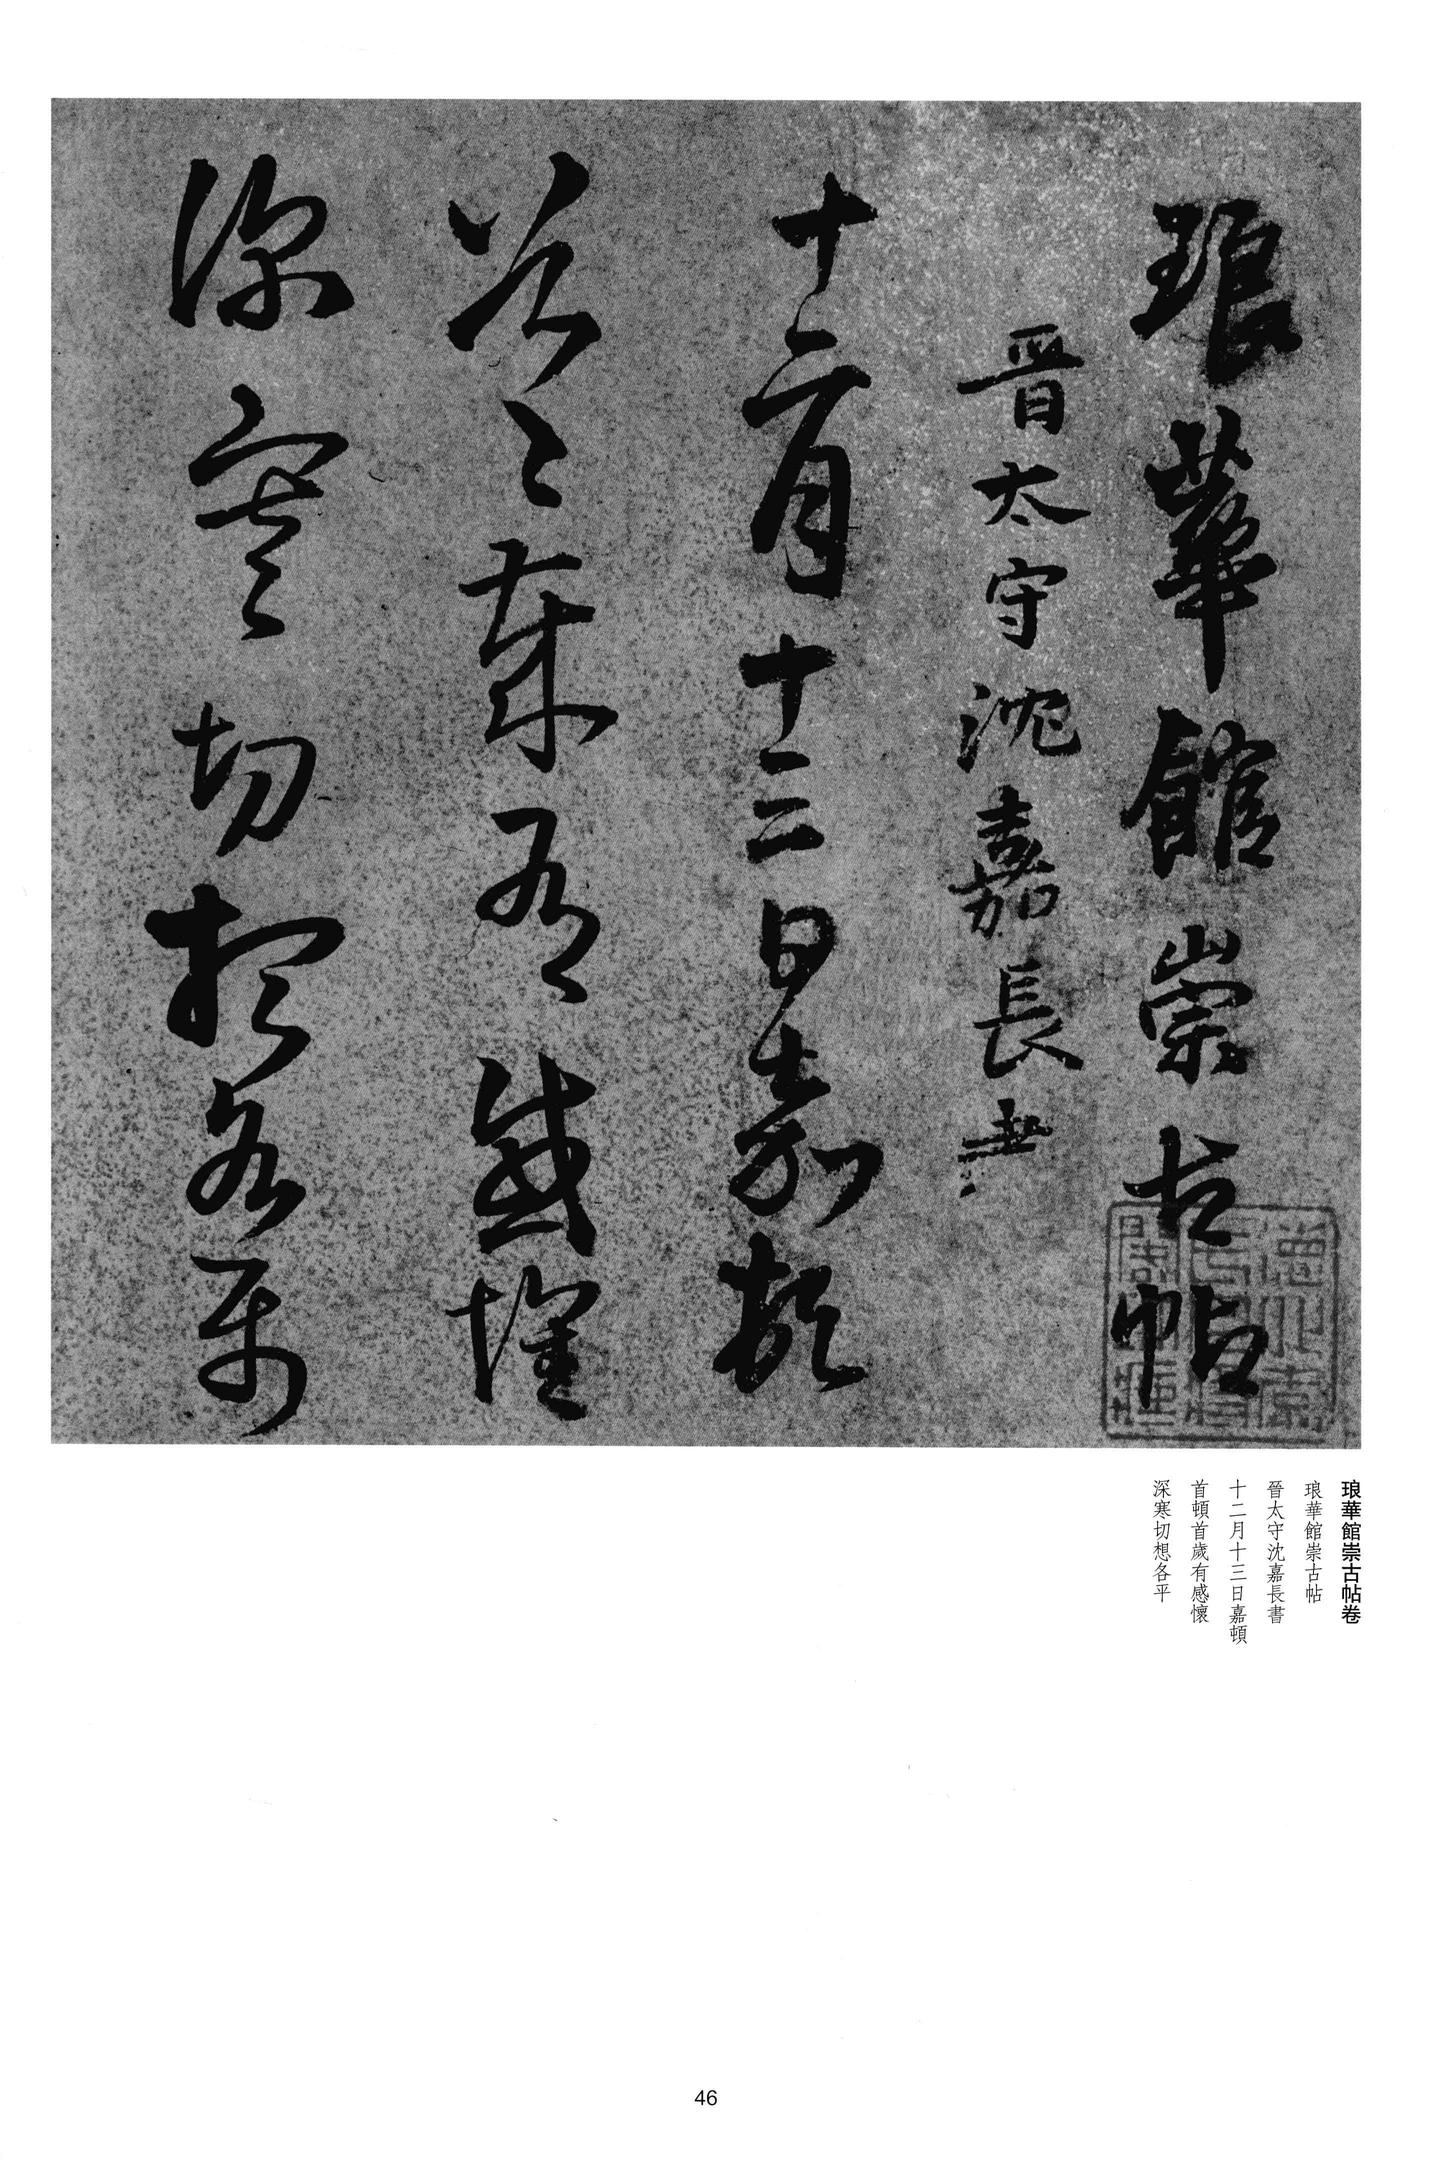 琅華館崇古帖
晉太守沈嘉長書
十二月十三日嘉頓
首〻歲有感懷
深寒切想各平
琅華館崇古帖卷
琅華館崇古帖
晉太守沈嘉長書
十二月十三日嘉頓
首頓首歲有感懷
深寒切想各平
46